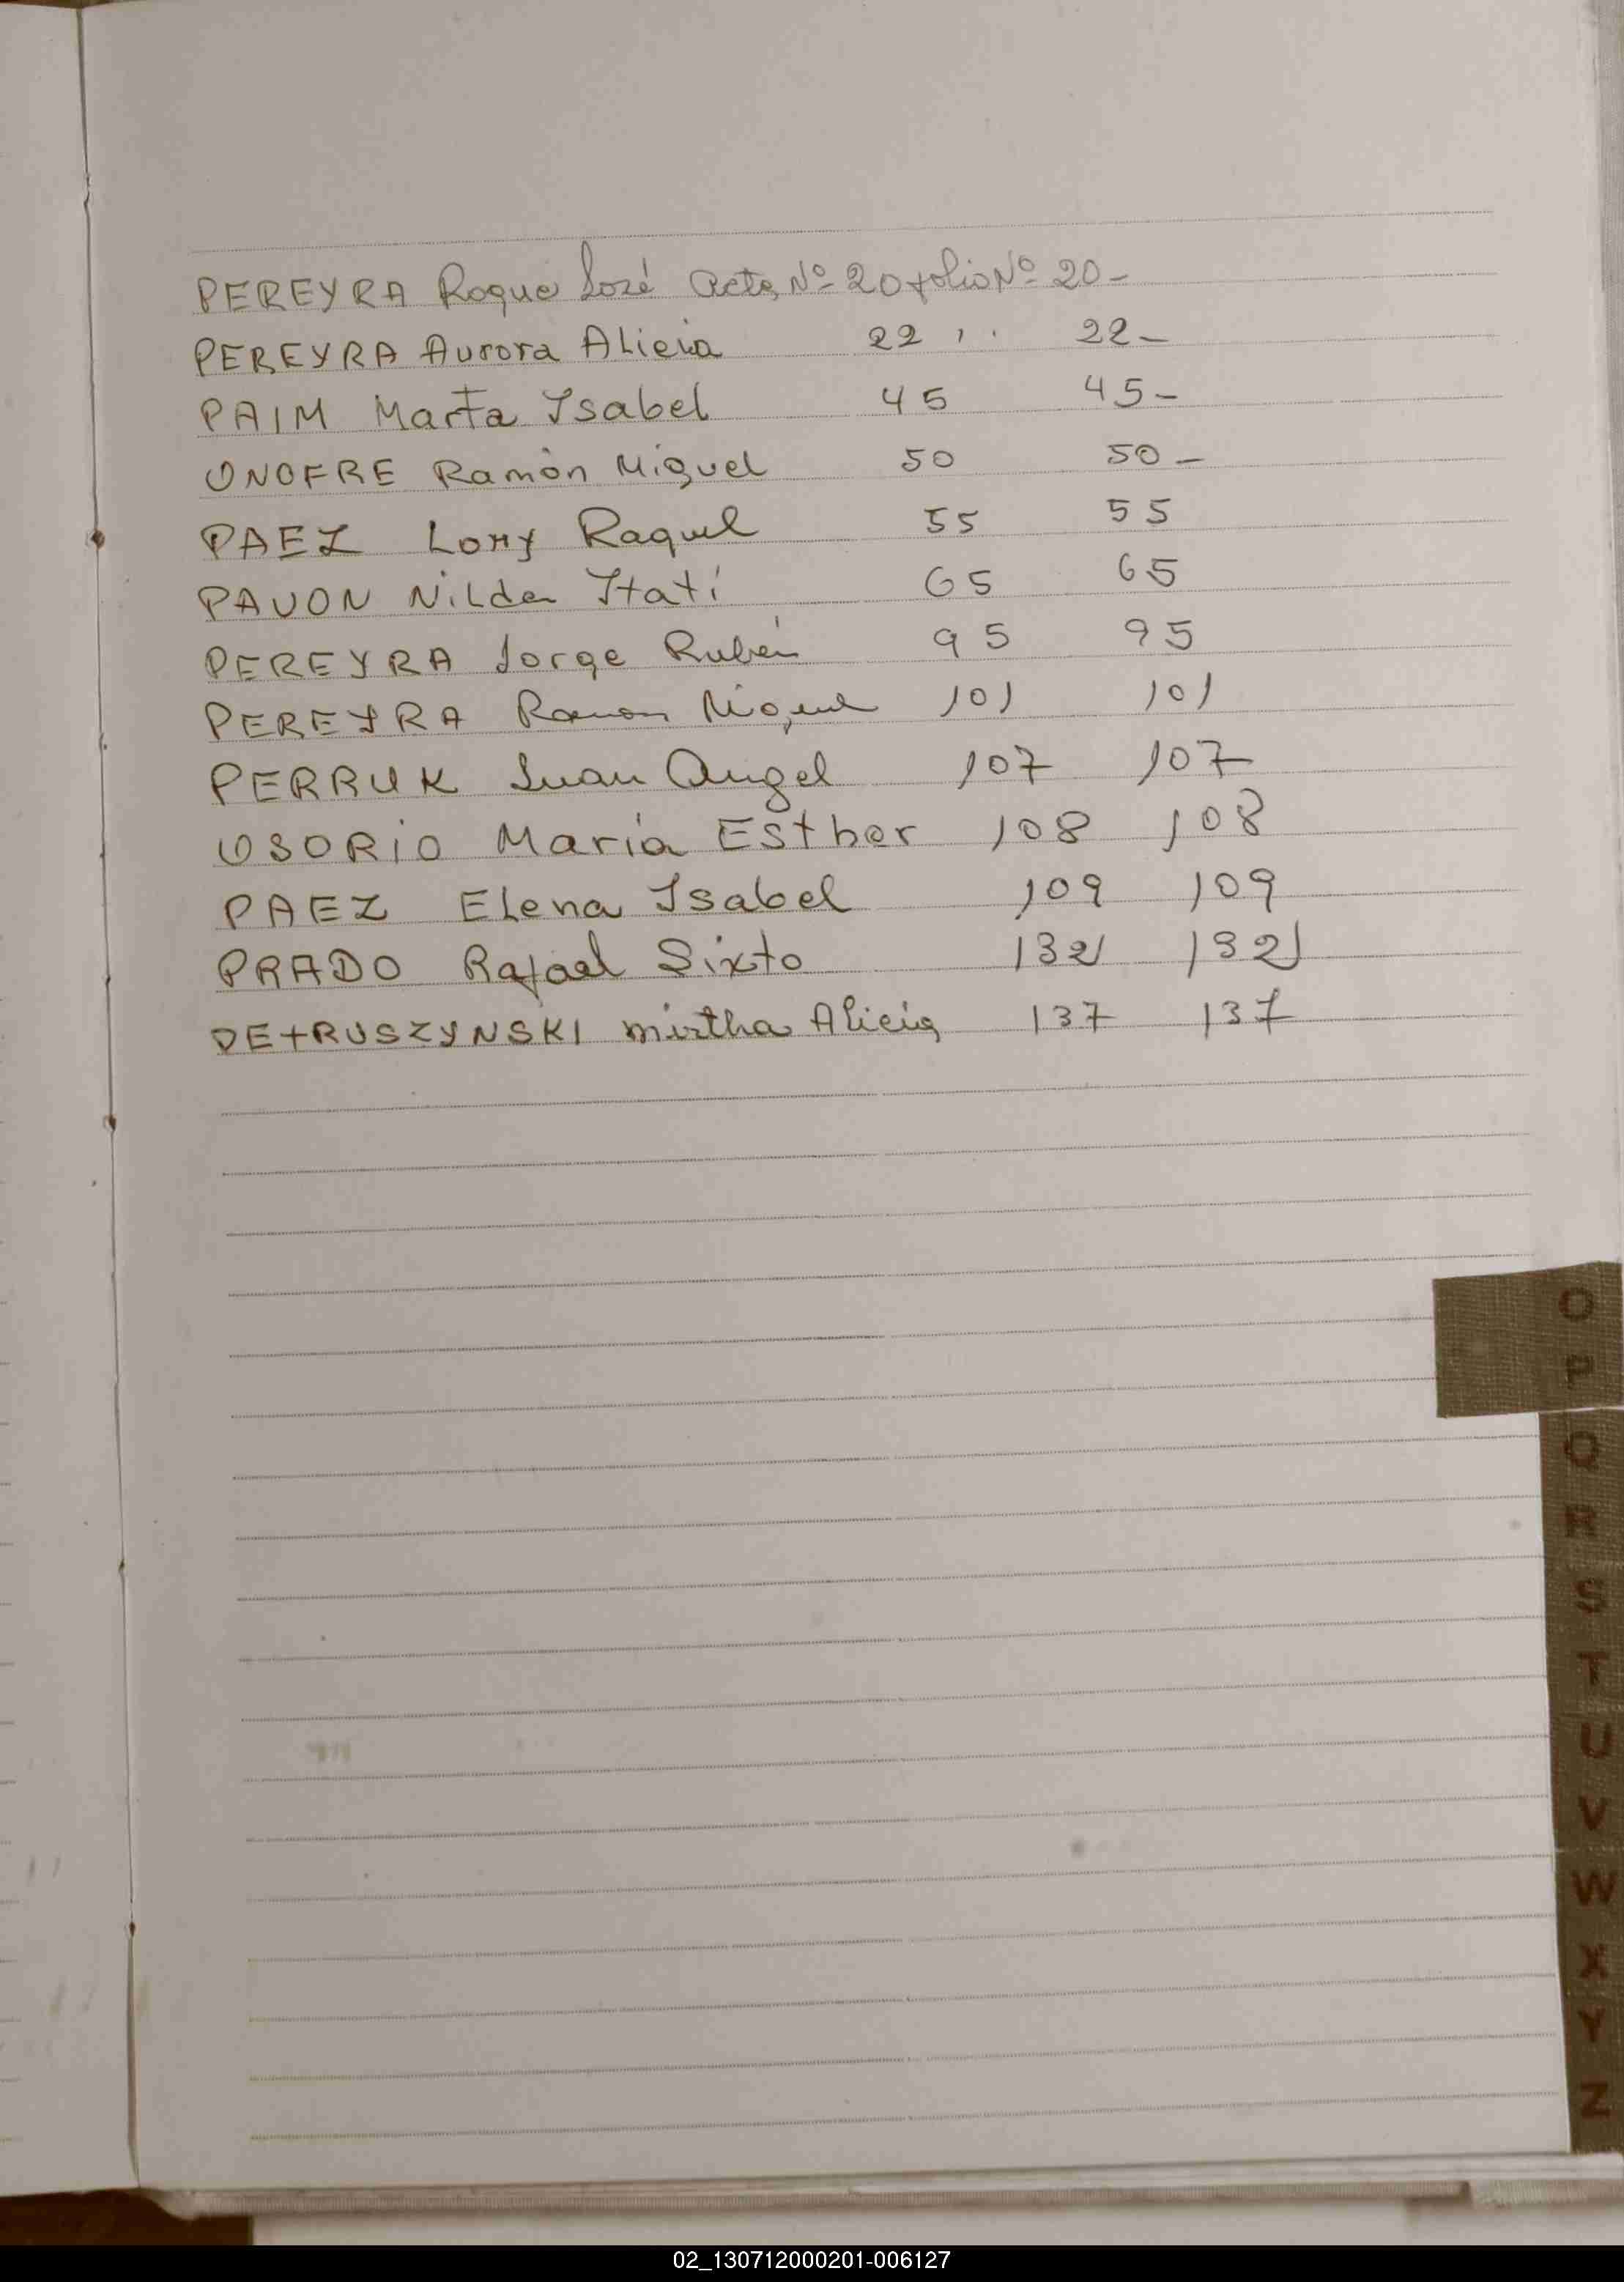 PEREYRA Roque José Acta Nº 20 folio Nº 20-
PEREYRA Aurora Alicia 22 , . 22-
PAIM Marta Isabel 45 45-
ONOFRE Ramón Miguel 50 50-
PAEZ Lomy Raquel 55 55
PAVON Nilda Itatí 65 65
PEREYRA Jorge Rubén 95 95
PEREYRA Ramon Miguel 101 101
PERRUK Juan Angel 107 107
OSORIO María Esther 108 108
PAEZ Elena Isabel 109 109
PRADO Rafael Sixto 132 132
PETRUSZYNSKI mirtha Alicia 137 137
O
P
Q
R
S
T
U
V
W
X
Y
Z
02_130712000201-006127